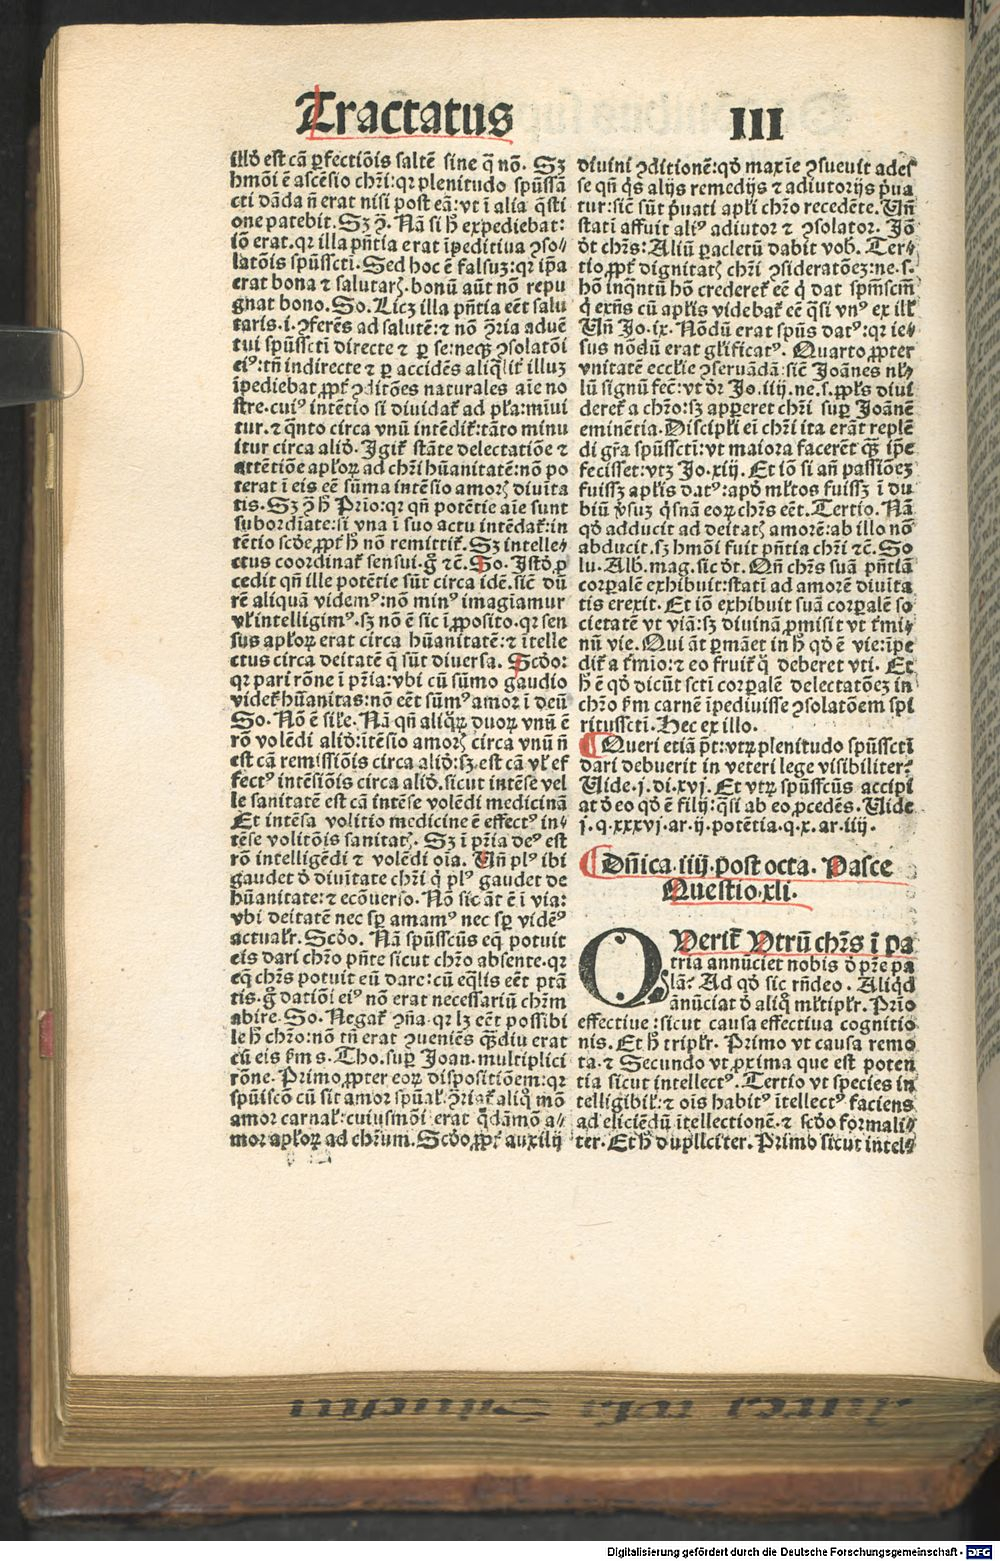 Tractatus III
illđ est cā ꝑfectiōis saltē sine q̄ nō. Sꝫ
hmōi ē ascēsio chr̄i: qr plenitudo spūssā
cti dāda n̄ erat nisi post eā: vt ī alia q̄sti
one patebit. Sꝫ ꝯ. Nā si h̄ expediebat:
iō erat. qr illa pn̄tia erat īpeditiua ꝯso⸗
latōis spūsscti. Sed hoc ē falsuꝫ: qr ip̄a
erat bona ⁊ salutarꝭ. bonū aūt nō repu
gnat bono. So. Licꝫ illa pn̄tia eēt salu
taris. i. ꝯferēs ad salutē: ⁊ nō ꝯ̄ria aduē
tui spūsscti directe ⁊ ꝑ se: neqꝫ ꝯsolatōi
eiꝰ: tn̄ indirecte ⁊ ꝑ accidēs aliq̄lit̄ illuꝫ
īpediebat ꝓpt̄ ꝯditōes naturales aīe no
stre. cuiꝰ intētio si diuidat̄ ad pl̄a: minui
tur. ⁊ q̄nto circa vnū intēdit̄: tāto minu
itur circa aliđ. Igit̄ stāte delectatiōe ⁊
attētiōe apl̄oꝝ ad chr̄i hūanitatē: nō po
terat ī eis eē sūma intēsio amorꝭ diuīta
tis. Sꝫ ꝯ h̄ Prīo: qr qn̄ potētie aīe sunt
subordīate: si vna ī suo actu intēdat̄: in
tētio scđe, ꝓpt̄ h̄ nō remittit̄. Sꝫ intelle⸗
ctus coordinat̄ sensui. g̊ ⁊c̄. So. Istđ ꝓ
cedit qn̄ ille potētie sūt circa idē. sic̄ dū
rē aliquā videmꝰ: nō minꝰ imagīamur
vl̄ intelligimꝰ. sꝫ nō ē sic ī ꝓposito. qr sen
sus apl̄oꝝ erat circa hūanitatē: ⁊ ītelle
ctus circa deitatē q̄ sūt diuersa. Scđo:
qr pari rōne ī pr̄ia: vbi cū sūmo gaudio
videt̄ hūanitas: nō eēt sūmꝰ amor ī deū
So. Nō ē sil̄e. Nā qn̄ aliq̄ꝝ duoꝝ vnū ē
rō volēdi aliđ: ītēsio amorꝭ circa vnū n̄
est cā remissiōis circa aliđ: sꝫ est cā vl̄ ef
fectꝰ intēsiōis circa aliđ. sicut intēse vel
le sanitatē est cā intēse volēdi medicinā
Et intēsa volitio medicine ē effectꝰ in⸗
tēse volitōis sanitatꝭ. Sꝫ ī pr̄ia deꝰ est
rō intelligēdi ⁊ volēdi oīa. Un̄ plꝰ ibi
gaudet đ diuītate chr̄i q̄ plꝰ gaudet de
hūanitate: ⁊ ecōuerso. Nō sic āt ē ī via:
vbi deitatē nec sꝑ amamꝰ nec sꝑ vidēꝰ
actualr̄. Scđo. Nā spūsscūs eq̄ potuit
eis dari chr̄o pn̄te sicut chr̄o absente. qr
eq̄ chr̄s potuit eū dare: cū eq̄lis eēt ptā
tis. g̊ datiōi eiꝰ nō erat necessariū chr̄m
abire. So. Negat̄ ꝯn̄a. qr lꝫ eēt possibi
le h̄ chr̄o: nō tn̄ erat ꝯueniēs q̄ꝫdiu erat
cū eis k̄m s. Tho. suꝑ Joan. multiplici
rōne. Primo, ꝓpter eoꝝ dispositiōem: qr
spūiscō cū sit amor spūal̄. ꝯ̄riat̄ aliq̄ mō
amor carnal̄: cuiusmōi erat q̄dāmō a⸗
mor apl̄oꝝ ad chr̄um. Scđo, ꝓpt̄ auxilij
diuini ꝯditionē: qđ maxīe ꝯsueuit ades
se qn̄ q̄s alijs remedijs ⁊ adiutorijs p̄ua
tur: sic̄ sūt p̄uati apl̄i chr̄o recedēte. Un̄
statī affuit aliꝰ adiutor ⁊ ꝯsolator. Jō
đt chr̄s: Aliū ꝑacletū dabit vob̄. Ter⸗
tio, ꝓpt̄ dignitatꝭ chr̄i ꝯsideratōeꝫ: ne. s.
hō inq̄ntū hō crederet̄ eē q̄ dat spm̄scm̄
q̄ exn̄s cū apl̄is videbat̄ eē q̄si vnꝰ ex ill̄
Un̄ Jo. ix. Nōdū erat spūs datꝰ: qr ie⸗
sus nōdū erat gl̄ificatꝰ. Quarto, ꝓpter
vnitatē eccl̄ie ꝯseruādā: sic̄ Joānes nl̄⸗
lū signū fec̄: vt đr Jo. iiij. ne. s. ppl̄s diui
deret̄ a chr̄o: sꝫ apꝑeret chr̄i suꝑ Joānē
eminētia. Discipl̄i eī chr̄i ita erāt replē
di gr̄a spūsscti: vt maiora facerēt q̄ꝫ ip̄e
fecisset: vtꝫ Jo. xiij. Et iō si an̄ passiōeꝫ
fuissꝫ apl̄is datꝰ: apđ ml̄tos fuissꝫ ī du
biū ꝟsuꝫ q̄snā eoꝝ chr̄s eēt. Tertio. Nā
qđ adducit ad deitatꝭ amorē: ab illo nō
abducit. sꝫ hmōi fuit pn̄tia chr̄i ⁊c̄. So
lu. Alb. mag. sic đt. Qn̄ chr̄s suā pn̄tiā
corꝑalē exhibuit: statī ad amorē diuīta
tis erexit. Et iō exhibuit suā corꝑalē so
cietatē vt viā: sꝫ diuinā ꝓmisit vt t̄mi⸗
nū vie. Qui āt ꝑmāet in h̄ qđ ē vie: īpe
dit̄ a t̄mio: ⁊ eo fruit̄ q̄ deberet vti. Et
h̄ ē qđ dicūt scti corꝑalē delectatōeꝫ in
chr̄o k̄m carnē īpediuisse ꝯsolatōem spi
ritusscti. Hec ex illo.
¶ Queri etiā p̄t: vtꝝ plenitudo spūsscti
dari debuerit in veteri lege visibiliter?
Uide. j. di. xvj. Et vtꝝ spūsscūs accipi
at đ eo qđ ē filij: q̄si ab eo ꝓcedēs. Uide
j. q. xxxvj. ar. ij. potētia. q. x. ar. iiij.
¶ Dn̄ica. iiij. post octa. Pasce
Questio. xli.
QUerit̄ Utrū chr̄s ī pa
tria annūciet nobis đ pr̄e pa
lā? Ad qđ sic rn̄deo. Aliqđ
ānūciat̄ đ aliq̊ ml̄tiplr̄. Prīo
effectiue: sicut causa effectiua cognitio
nis. Et h̄ triplr̄. Primo vt causa remo
ta. ⁊ Secundo vt, ꝓxima que est poten
tia sicut intellectꝰ. Tertio vt species in
telligibil̄: ⁊ oīs habitꝰ ītellectꝰ faciens
ad eliciēdū ītellectionē. ⁊ scđo formali⸗
ter. Et h̄ dupliciter. Primo sicut intel⸗
Digitalisierung gefördert durch die Deutsche Forschungsgemeinschaft - DFG